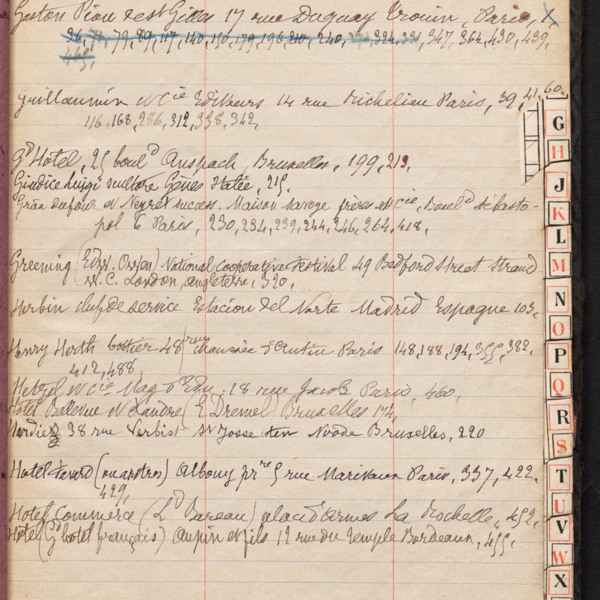 Gaston Piou de St Gilles 17 rue Duguay Trouin, Paris, X
36, 79, 89, 117, 140, 150, 179, 196, 210, 240, 324, 331, 347, 364, 430, 439,
463,
Guillaumin & Cie Editeurs 14 rue Richelieu Paris, 39, 41, 60,
116, 168, 286, 312, 338, 342,
Gd Hôtel, 25 bould Anspach, Bruxelles, 199, 213,
Giudice Luigi sculteur Gênes Italie, 215,
Maison Savoye frères et Cie, Bould Sébasto-
pol 6 Paris, 230, 234, 239, 244, 246, 264, 418,
Greening (Edw. Owen) National cooperative Festival 49 Bedford Street Strand
W. C. London, Angleterre, 320,
Herbin chef de service Estacion del Norte Madrid Espagne 103,
Henry Herth bottier 48 rue chaussée d'Antin Paris 148, 188, 194, 355, 382,
412, 488,
Hetzel & Cie Mag d'Edu. 18 rue Jacob Paris, 460,
Hotel Bellevue (E Dremel) Bruxelles 174,
38 rue Verbist St Josse ten Noode Bruxelles, 220
Hotel Favard (ou autres) Albouy prre 5 rue Marivaux Paris, 337, 422,
429,
Hotel Commerce place d'armes La Rochelle, 452,
Hôtel (Gd hotel français) Aupin et fils 12 rue du Temple Bordeaux, 455,
G
H
J
K
L
M
N
O
P
Q
R
S
T
U
V
W
X